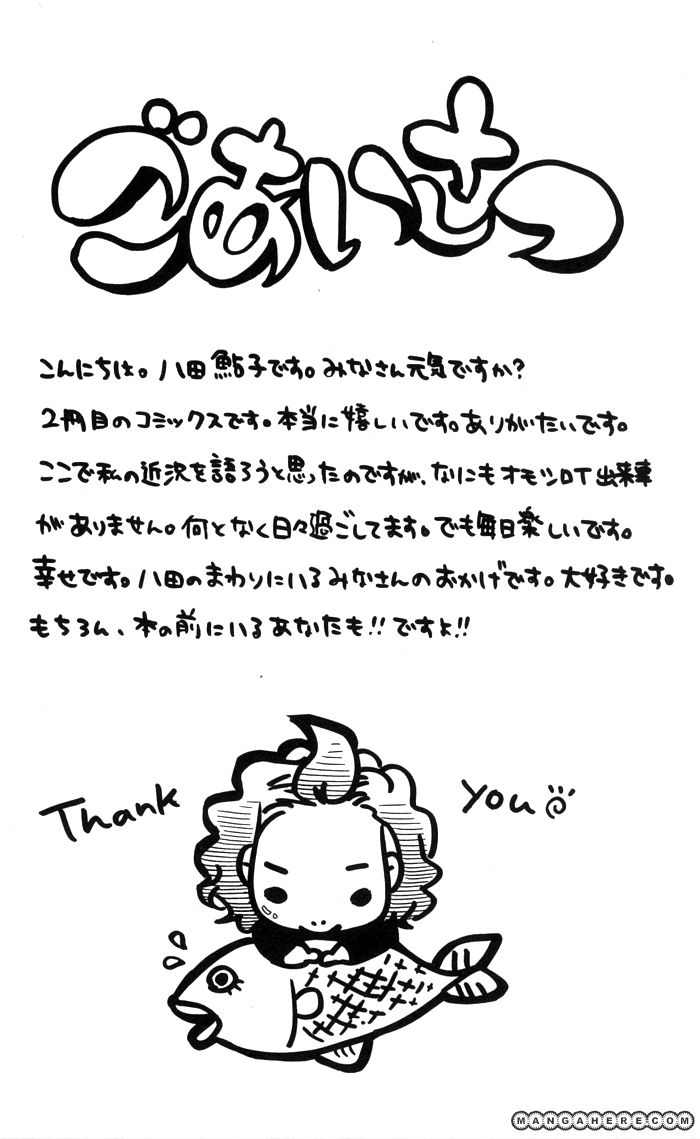 ごあいさつ
こんにちは。八田鮎子です。みなさん元気ですか?
2冊目のコミックスです。本当に嬉しいです。ありがたいです。
ここで私の近況を語ろうと思ったのですが、なにもオモシロイ出来事
がありません。何となく日々過ごしてます。でも毎日楽しいです。
幸せです。八田のまわりにいるみなさんのおかげです。大好きです。
もちろん、本の前にいるあなたも!!ですよ!!
Thank You
MANGAHERE.COM